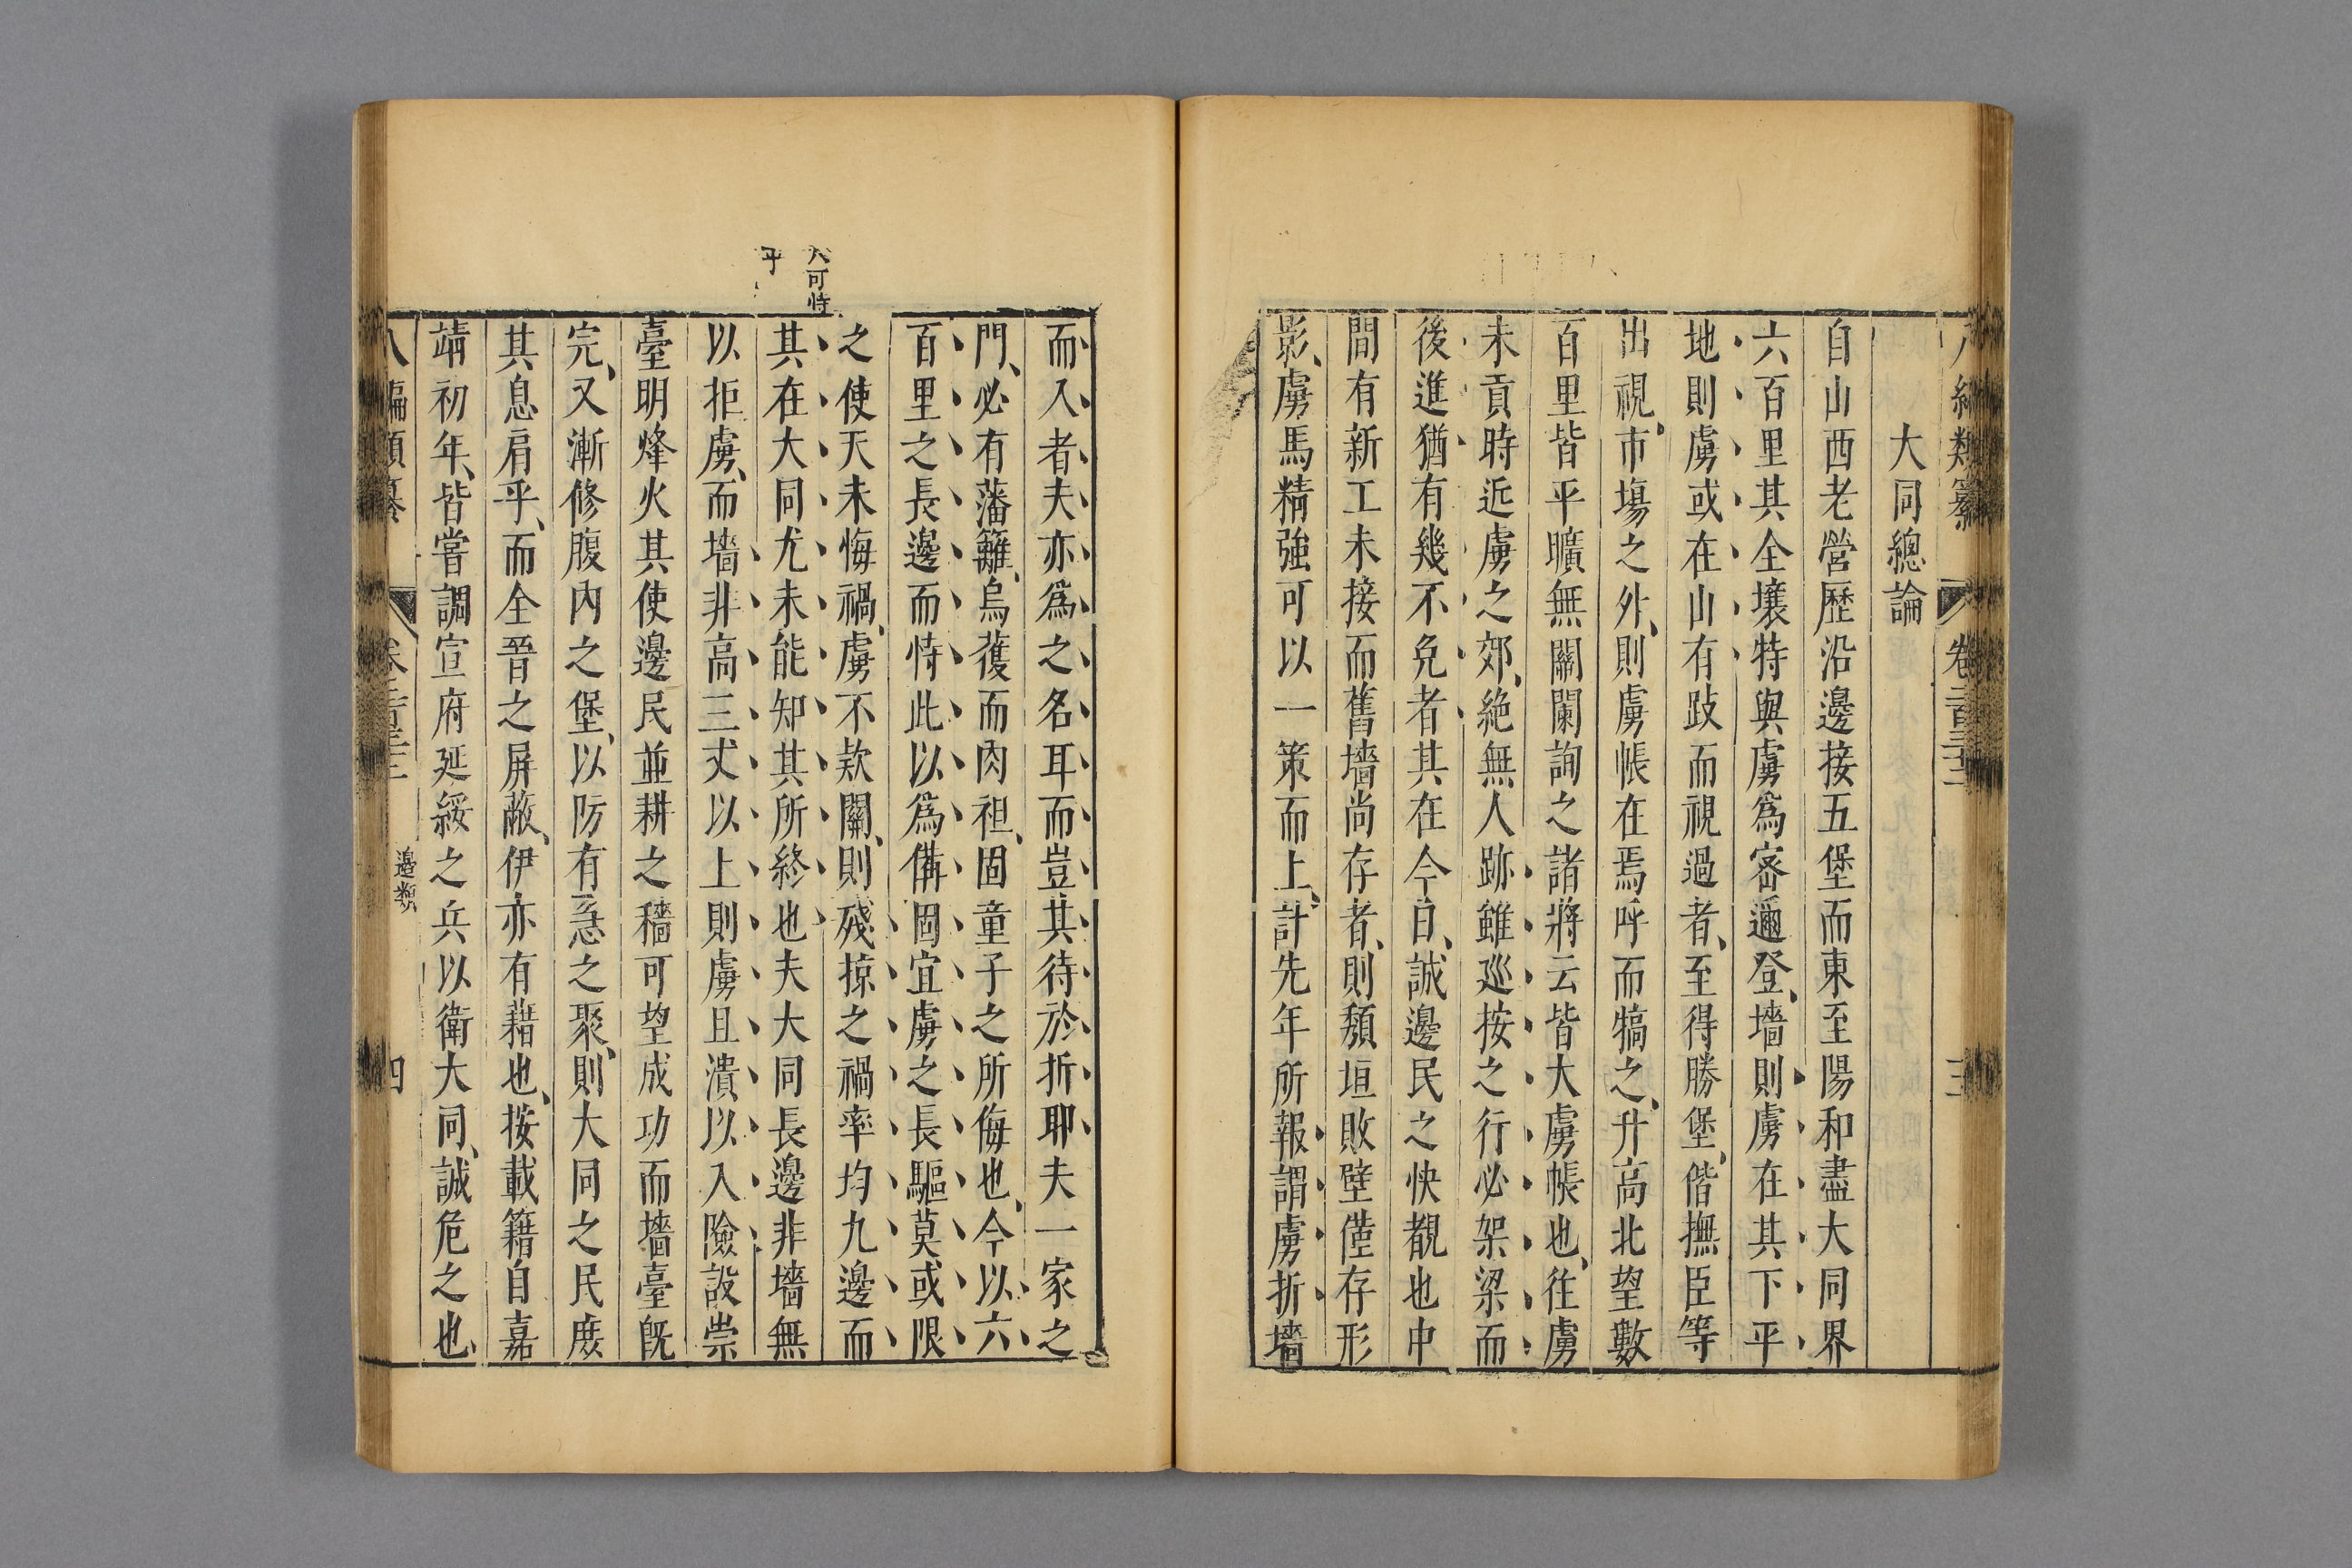 八編類纂　卷二百三十二　三
大同總論
自山西老營歷沿邊接五堡而東至陽和盡大同界
六百里其全壤特與虜爲宻邇登、墻則虜在其下平
地則虜或在山有跂而視過者、至得勝堡、偕撫臣等
出視、市塲之外、則虜帳在焉呼而犒之、升高北望數
百里皆平曠無關闌詢之諸將云皆大虜帳也、徃虜
未貢時近虜之郊、絶無人跡雖廵按之行必架梁而
後進猶有幾不免者其在今日、誠邊民之快覩也中
間有新工未接而舊墻尚存者、則頽垣敗壁僅存形
影、虜馬精強可以一策而上、計先年所報謂虜折墻
而入者夫亦爲之名耳而豈其待於折耶夫一家之
門、必有藩籬、烏獲而肉袒、固童子之所侮也、今以六
百里之長邊而恃此以爲備固宜虜之長驅莫或限
之使天未悔禍、虜不欵關、則殘掠之禍率均九邊而
其在大同尤未能知其所終也夫大同長邊非墻無
以拒虜、而墻非高三丈以上則虜且潰以入險設崇
臺明烽火其使邊民並耕之穡可望成功而墻臺既
完、又漸修腹內之堡、以防有急之聚、則大同之民庶
其息肩乎、而全晉之屏蔽、伊亦有藉也、按載籍自嘉
靖初年、皆嘗調宣府延綏之兵以衛大同、誠危之也、
可恃
乎
八編類纂　卷二百三十二　邊類　四